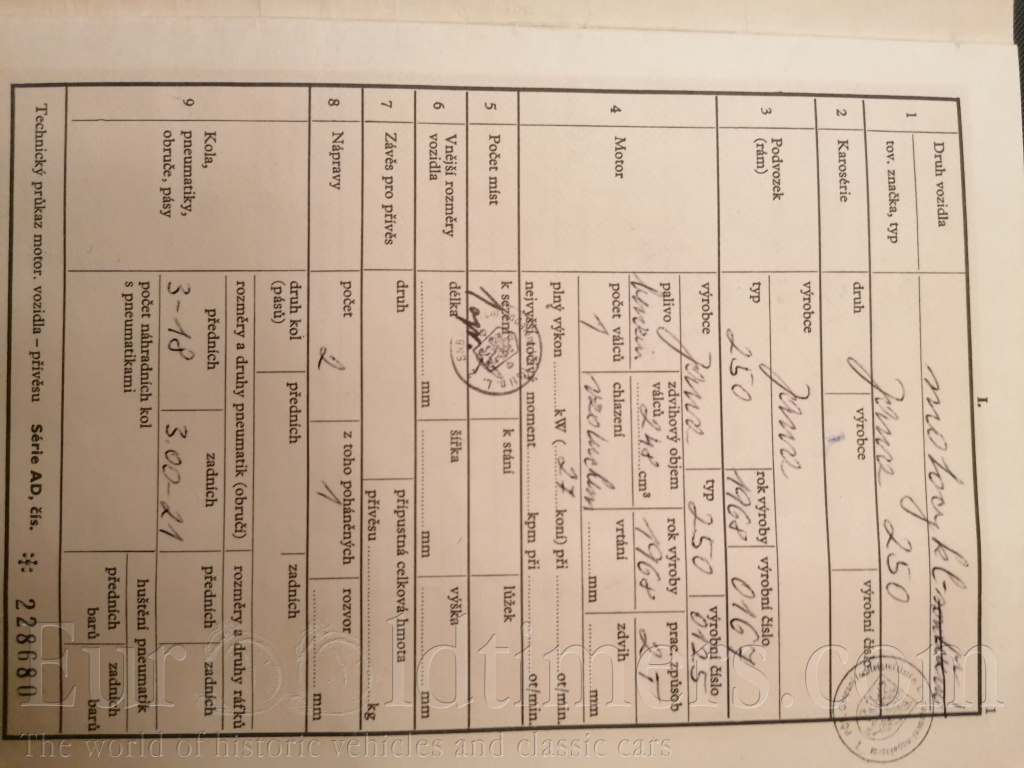 I.
1
1 Druh vozidla motocykl
tov. značka, typ Jawa 250
2 Karosérie druh výrobce výrobní číslo
3 Podvozek (rám) výrobce Jawa
typ 250 rok výroby 1968 výrobní číslo
4 Motor výrobce Jawa typ 250 výrobní číslo 0125
palivo zdvihový objem válců 248 cm³ rok výroby 1968 prac. způsob 2T
počet válců 1 chlazení vzduchem vrtání mm zdvih
plný výkon kW (27 koní) při ot/min.
nejvyšší točivý moment kpm při ot/min.
5 Počet míst k sezení k stání lůžek
6 Vnější rozměry vozidla délka mm šířka mm výška mm
7 Závěs pro přívěs druh přípustná celková hmota přívěsu kg
8 Nápravy počet 2 z toho poháněných 1 rozvor mm
9 Kola, pneumatiky, obruče, pásy
druh kol (pásů) předních zadních
rozměry a druhy pneumatik (obručí) rozměry a druhy ráfků
předních zadních předních zadních
3-18 3.00-21
počet náhradních kol s pneumatikami huštění pneumatik
předních zadních
barů barů
Technický průkaz motor. vozidla – přívěsu Série AD, čís. 228680
EurOldtimers.com
The world of historic vehicles and classic cars